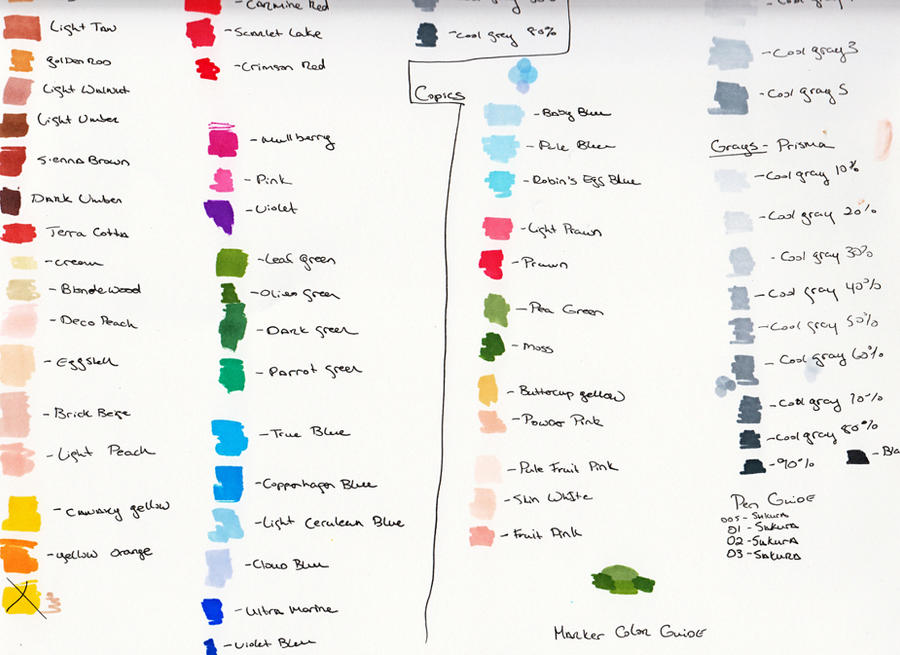 Light Tan
goldenroo
Light Walnut
Light Umber
Sienna Brown
Dark Umber
Terra Cotta
-cream
-Blondewood
-Deco Peach
-Eggshell
-Brick Beige
-Light Peach
-Canary yellow
-yellow orange
-Carmine Red
-Scarlet Lake
-Crimson Red
-mullberry
-Pink
-Violet
-Leaf green
-Olive green
-Dark green
-Parrot green
-True Blue
-Coppenhagen Blue
-Light Cerulean Blue
-Cloud Blue
-Ultra Marine
-Violet Blue
-Cool grey 80%
Copics
-Baby Blue
-Pale Blue
-Robin's Egg Blue
-Light Prawn
-Prawn
-Pea Green
-Moss
-Buttercup yellow
-Powder Pink
-Pale Fruit Pink
-Skin White
-Fruit Pink
Marker Color Guide
-Cool gray 3
-Cool gray 5
Grays - Prisma
-Cool gray 10%
-Cool gray 20%
-Cool gray 30%
-Cool gray 40%
-Cool gray 50%
-Cool gray 60%
-Cool gray 70%
-Cool gray 80%
-90%
Pen Guide
005-Sakura
01-Sakura
02-Sakura
03-Sakura